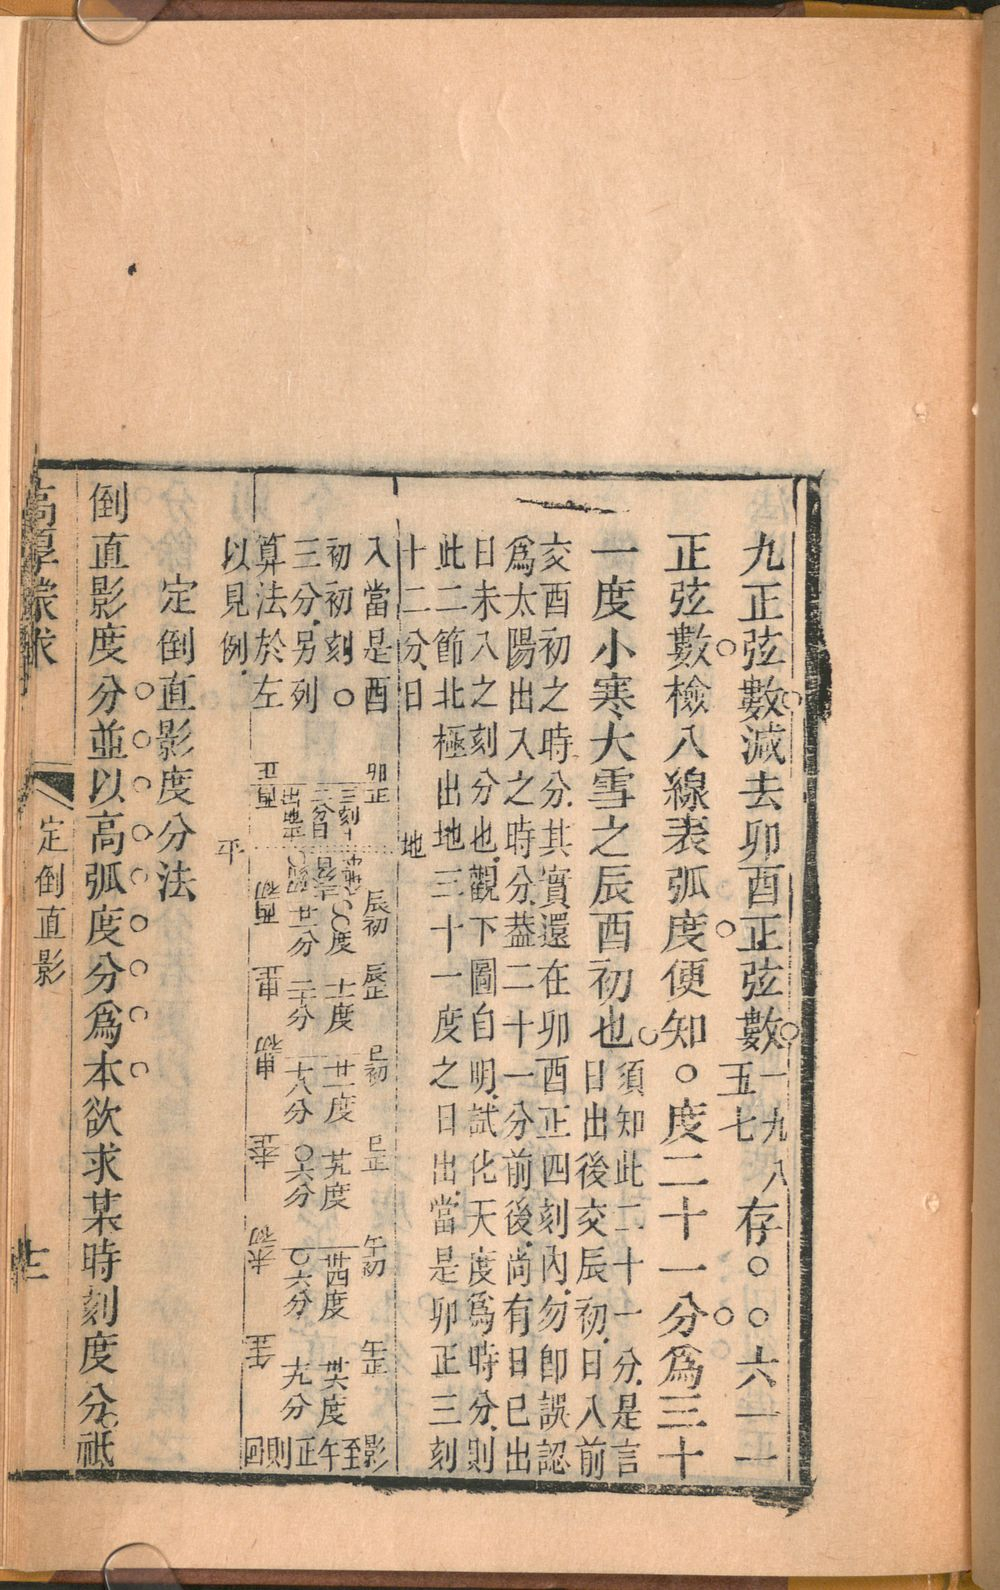 九正弦數減去卯酉正弦數一九八五七存○○六一一
正弦數檢八線表弧度便知○度二十一分為三十
一度小寒大雪之辰酉初也
須知此二十一分是言
日出後交辰初日入前
交酉初之時分其實還在卯酉正四刻內勿卽誤認
為太陽出入之時分葢二十一分前後尚有日已出
日未入之刻分也觀下圖自明試化天度為時分則
此二節北極出地三十一度之日出當是卯正三刻
十二分日
入當是酉
初初刻○
三分另列
算法於左
以見例
地
平
卯正
辰初
辰正
巳初
巳正
午初
午正
三刻十
二分日
○○度
廿一分
十一度
二十分
廿一度
十八分
廿九度
○六分
卅四度
○六分
卅六度
十九分
酉正
酉初
申正
申初
未正
未初
午正
影至午正則回
定倒直影度分法
倒直影度分並以高弧度分為本欲求某時刻度分祇
高厚蒙求
定倒直影
十二